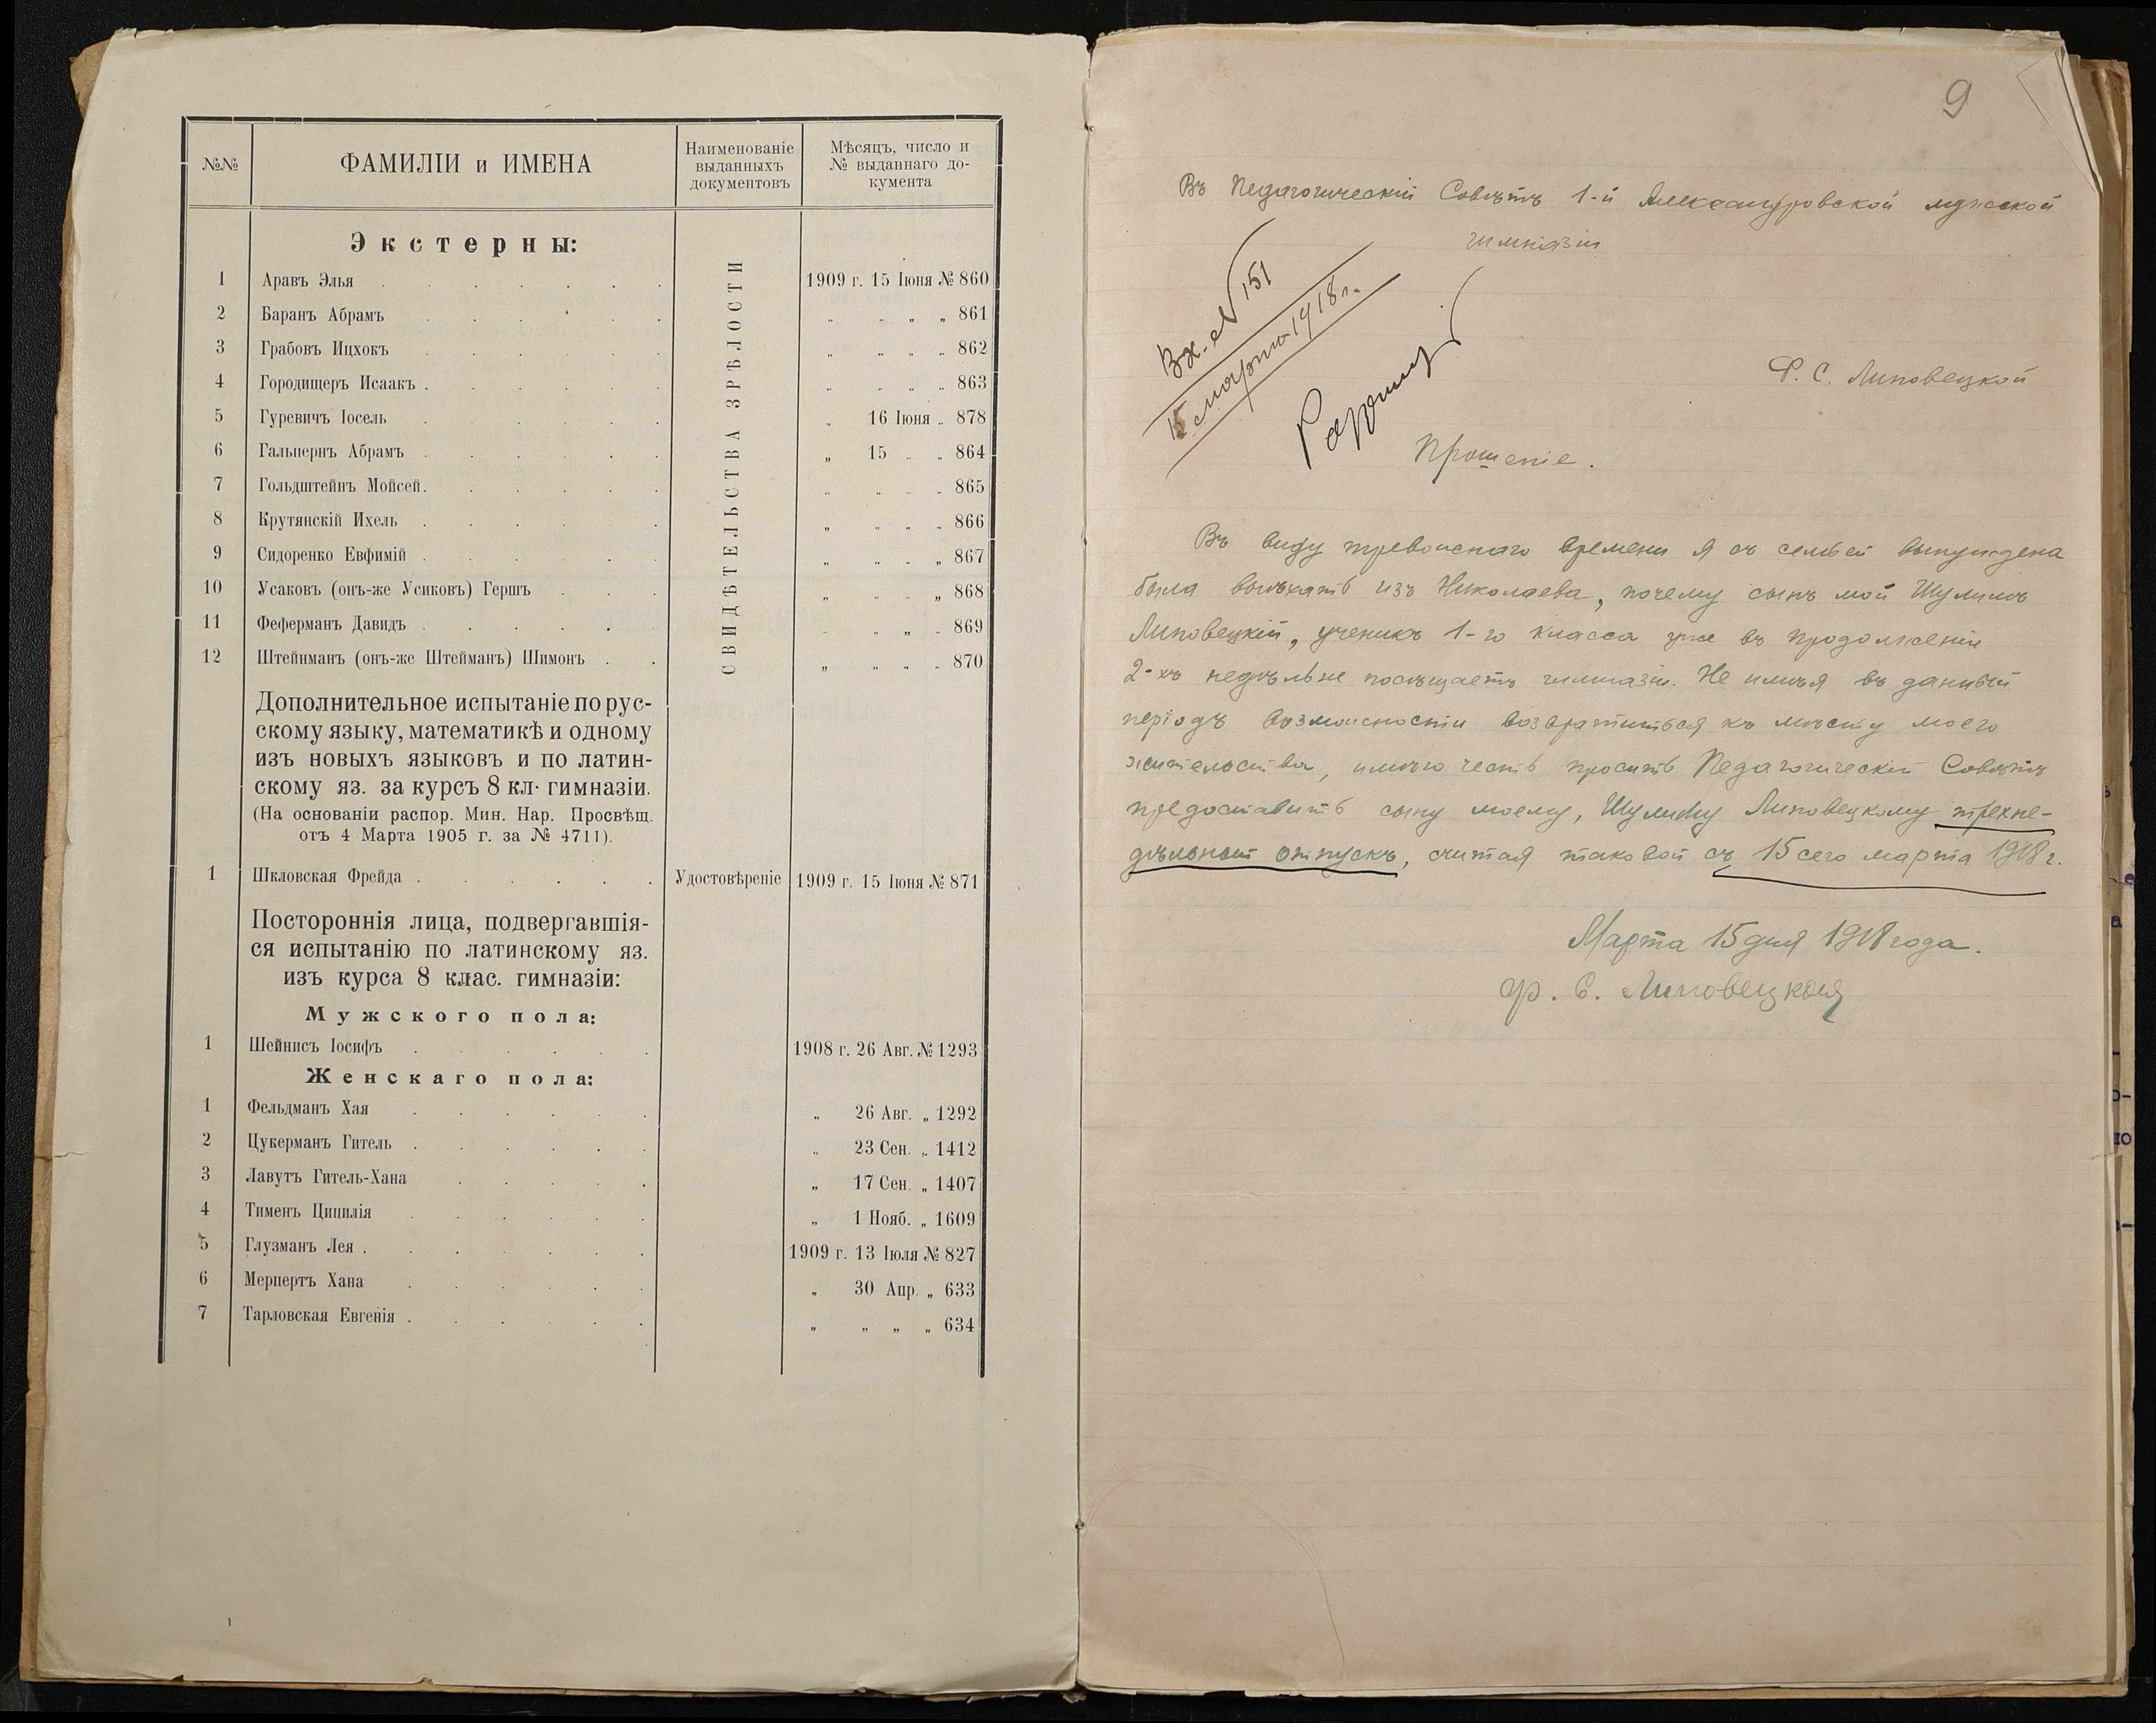 №№
ФАМИЛІИ и ИМЕНА
Наименованіе
выданныхъ
документовъ
Мѣсяцъ, число и
№ выданнаго до-
кумента
Экстерны:
СВИДѢТЕЛЬСТВА ЗРѢЛОСТИ
1 Аравъ Элья . . . . . . . 1909 г. 15 Іюня № 860
2 Баранъ Абрамъ . . . . . . „ „ „ „ 861
3 Грабовъ Ицхокъ . . . . . . „ „ „ „ 862
4 Городищеръ Исаакъ . . . . . . „ „ „ „ 863
5 Гуревичъ Іосель . . . . . „ 16 Іюня „ 878
6 Гальпернъ Абрамъ . . . . . . „ 15 „ „ 864
7 Гольдштейнъ Мойсей. . . . . . „ „ „ „ 865
8 Крутянскій Ихель . . . . . . „ „ „ „ 866
9 Сидоренко Евфимій . . . . . . „ „ „ „ 867
10 Усаковъ (онъ-же Усиковъ) Гершъ . . . „ „ „ „ 868
11 Феферманъ Давидъ . . . . . . „ „ „ „ 869
12 Штейнманъ (онъ-же Штейманъ) Шимонъ . . „ „ „ „ 870
Дополнительное испытаніе по рус-
скому языку, математикѣ и одному
изъ новыхъ языковъ и по латин-
скому яз. за курсъ 8 кл. гимназіи.
(На основаніи распор. Мин. Нар. Просвѣщ.
отъ 4 Марта 1905 г. за № 4711).
1 Шкловская Фрейда . . . . . . Удостовѣреніе 1909 г. 15 Іюня № 871
Постороннія лица, подвергавшія-
ся испытанію по латинскому яз.
изъ курса 8 клас. гимназіи:
Мужского пола:
1 Шейнисъ Іосифъ . . . . . . 1908 г. 26 Авг. № 1293
Женскаго пола:
1 Фельдманъ Хая . . . . . . „ 26 Авг. „ 1292
2 Цукерманъ Гитель . . . . . . „ 23 Сен. „ 1412
3 Лавутъ Гитель-Хана . . . . . „ 17 Сен. „ 1407
4 Тименъ Цицилія . . . . . . „ 1 Нояб. „ 1609
5 Глузманъ Лея . . . . . . . 1909 г. 13 Іюля № 827
6 Мерпертъ Хана . . . . . . „ 30 Апр. „ 633
7 Тарловская Евгенія . . . . . . „ „ „ „ 634
9
Въ Педагогическій Совѣтъ 1-й Александровской мужской
гимназіи
Вх. № 151
15 марта 1918 г.
Ф. С. Липовецкой
Прошеніе.
Въ виду тревожнаго времени я съ семьей вынуждена
была выѣхать изъ Николаева, почему сынъ мой Шулимъ
Липовецкій, ученикъ 1-го класса уже въ продолженіи
2-хъ недѣль не посѣщаетъ гимназіи. Не имѣя въ данный
періодъ возможности возвратиться къ мѣсту моего
жительства, имѣю честь просить Педагогическій Совѣтъ
предоставить сыну моему, Шулиму Липовецкому трехне-
дѣльный отпускъ, считая таковой съ 15 сего марта 1918 г.
Марта 15 дня 1918 года.
Ф. С. Липовецкая